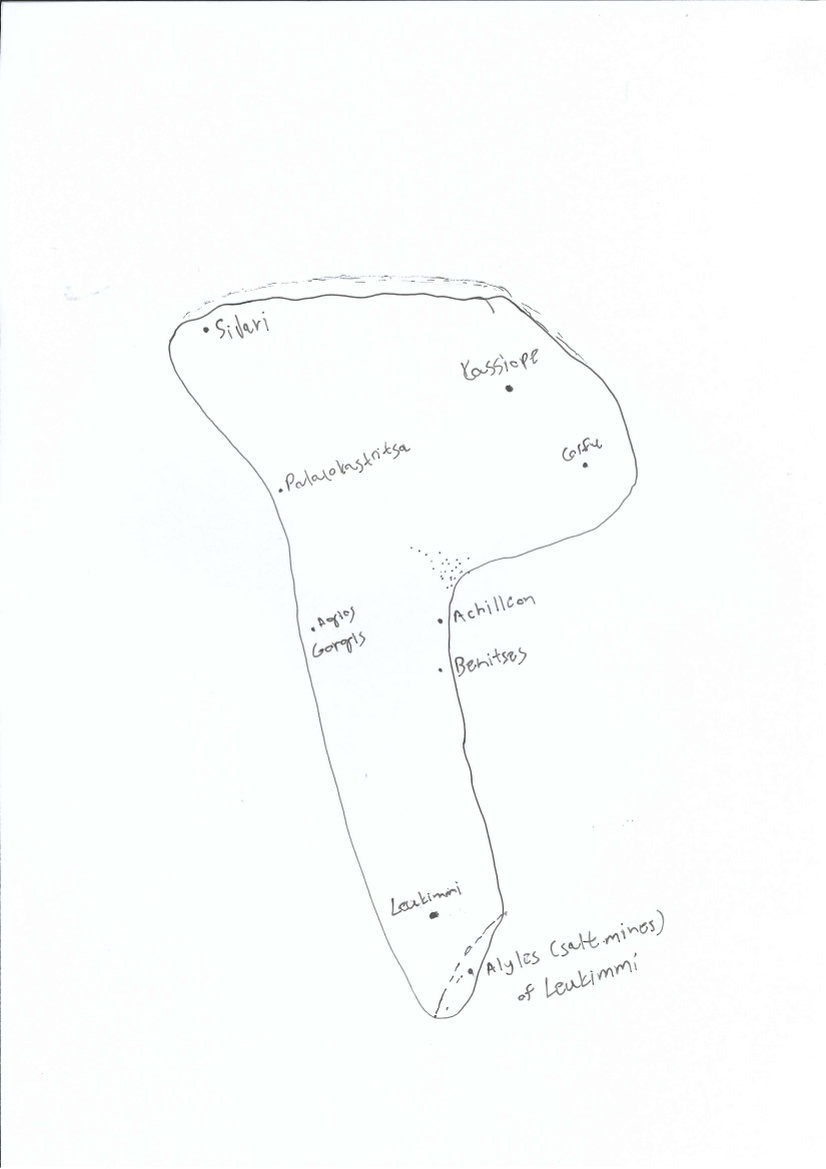 Sidari
Kassiope
Corfu
Palaiokastritsa
Agios
Gorgis
Achilleon
Benitses
Leukimmi
Alykes (salt mines)
of Leukimmi